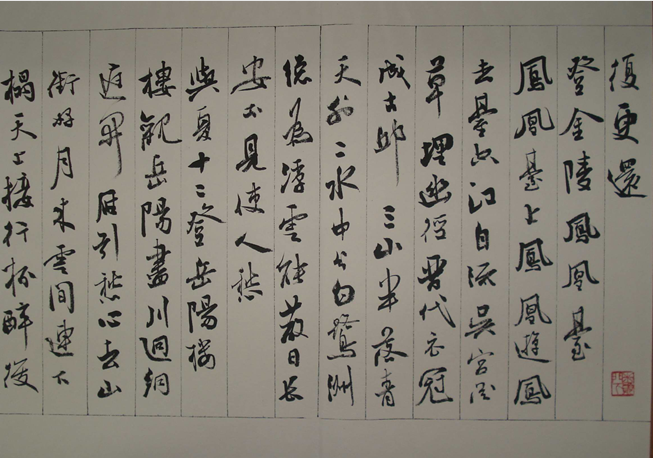 復更還
登金陵鳳凰臺
鳳凰臺上鳳凰遊鳳
去臺空江自流吳宮花
草埋幽徑晉代衣冠
成古邱三山半落青
天外二水中分白鷺洲
總為浮雲能蔽日長
安不見使人愁
與夏十二登岳陽樓
樓觀岳陽盡川迥洞
庭開雁引愁心去山
銜好月來雲間連下
榻天上接行杯醉後